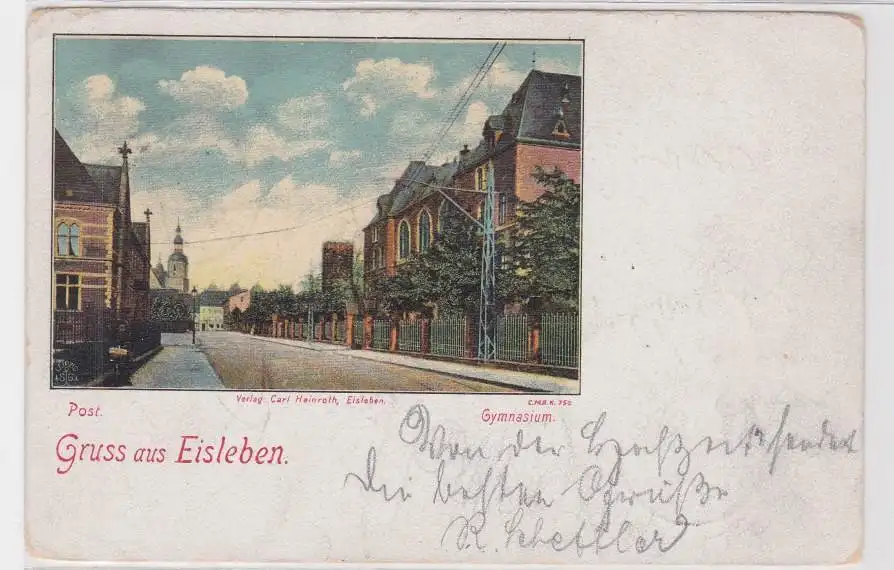 Verlag: Carl Heinroth, Eisleben.
C.M.B.K. 750
Post.
Gymnasium.
Gruss aus Eisleben.
Von der sendet
Die besten Grüße
R. Schettler